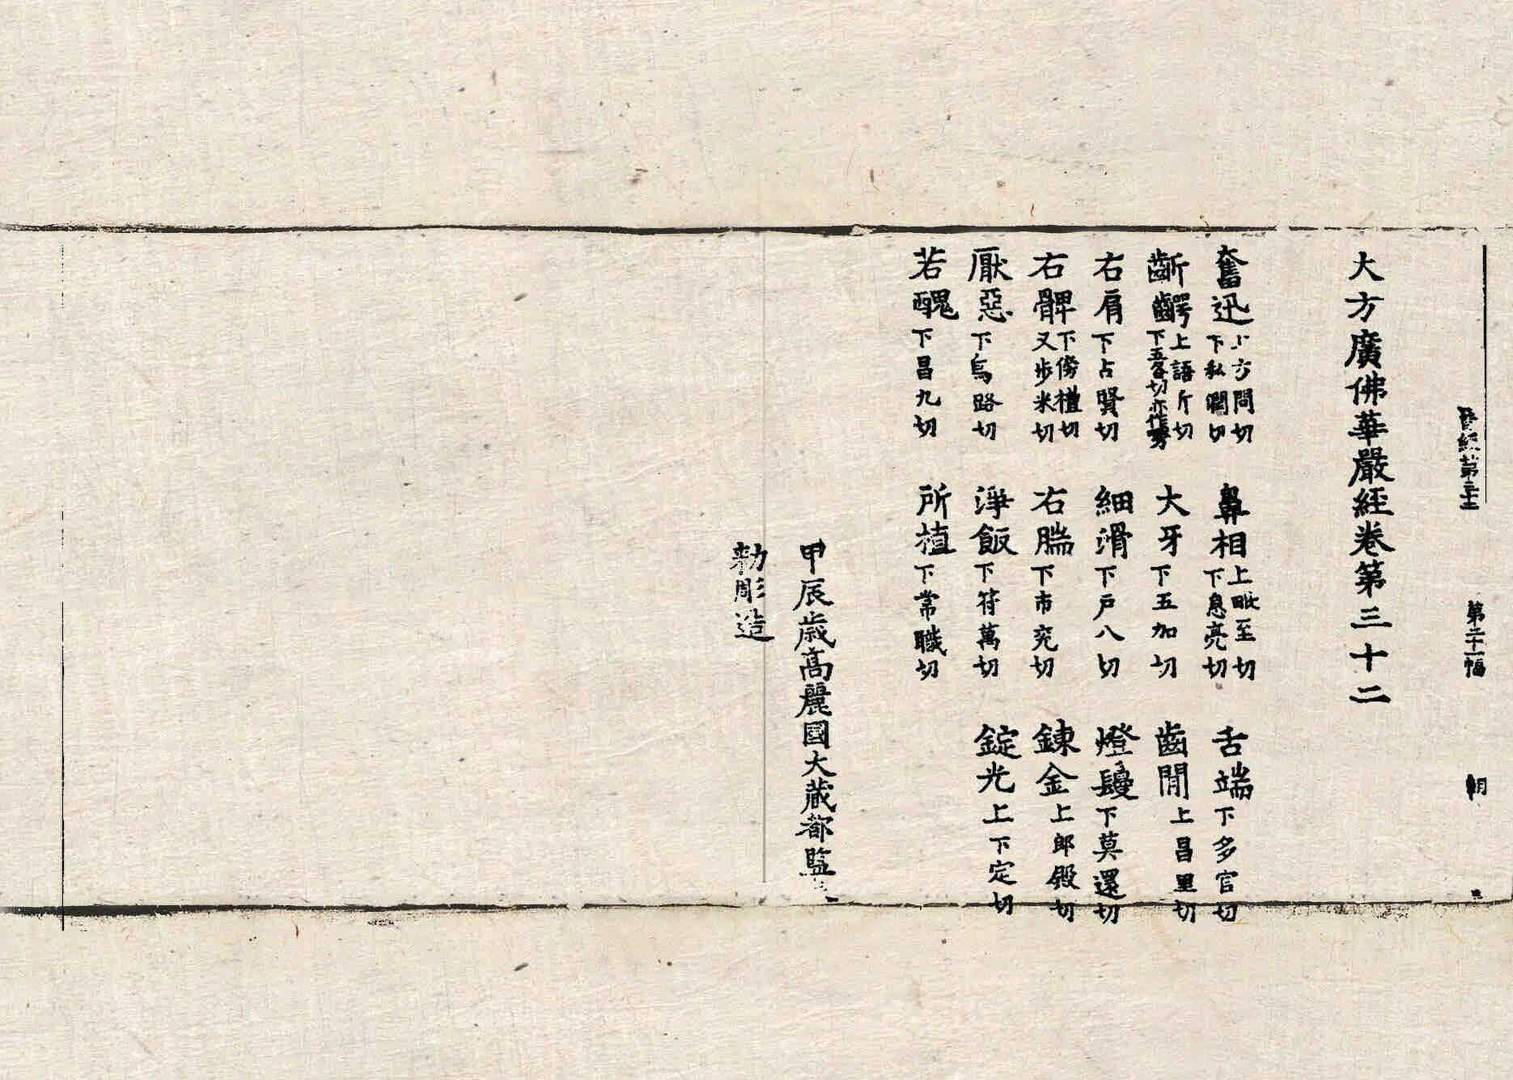 晉經第三十二 第二十一幅 朝
大方廣佛華嚴經卷第三十二
奮迅上方問切下私閏切 鼻相上毗至切下息亮切 舌端下多官切
齗齶上語斤切下五各切亦作𠷎 大牙下五加切 齒閒上昌里切
右肩下占賢切 細滑下戶八切 燈鬘下莫還切
右髀下傍禮切又步米切 右腨下市兖切 鍊金上郎殿切
厭惡下烏路切 淨飯下符萬切 錠光上下定切
若醜下昌九切 所植下常職切
甲辰歲高麗國大藏都監
勅彫造